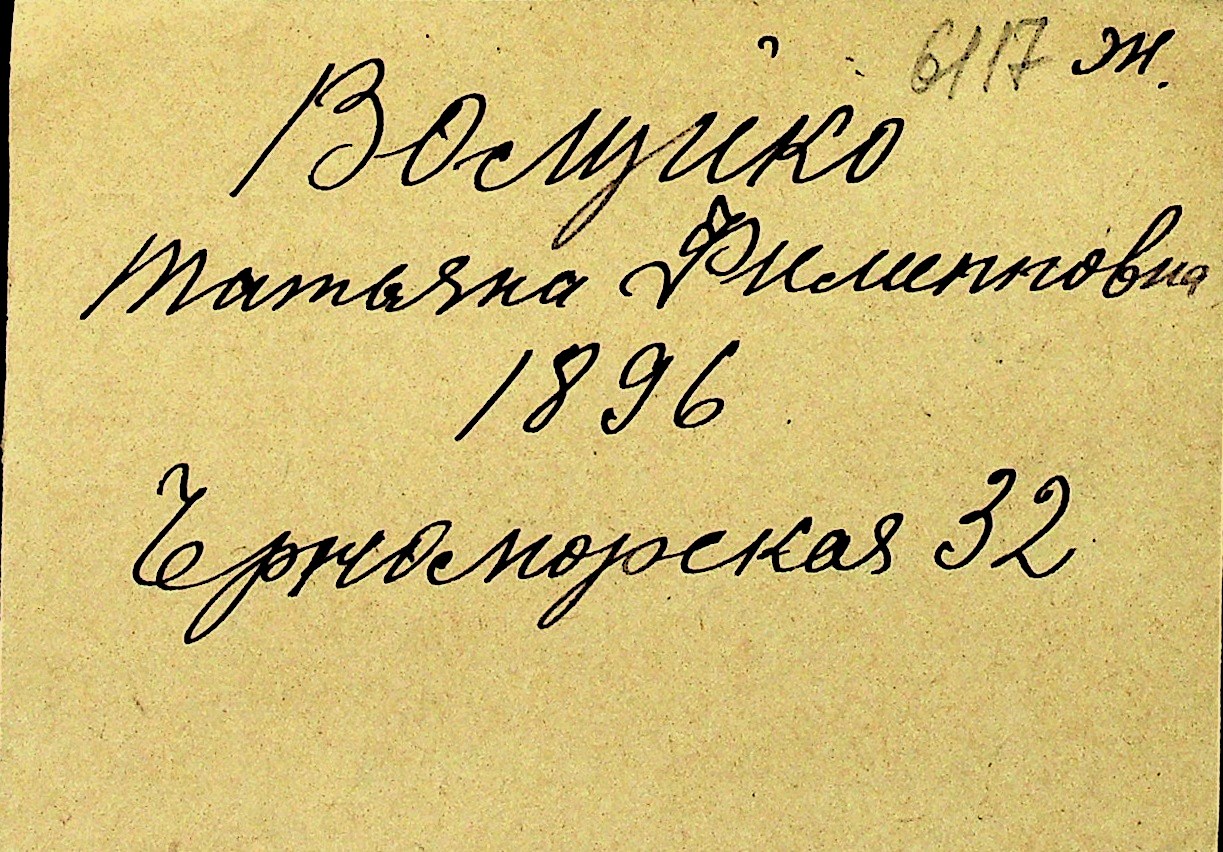 6117 ж.
Волуйко
Татьяна Филипповна
1896
Черноморская 32